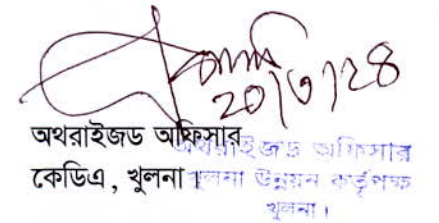 ২০/৩/২৪
অথরাইজড অফিসার
কেডিএ, খুলনা।
অথরাইজড অফিসার
খুলনা উন্নয়ন কর্তৃপক্ষ
খুলনা।